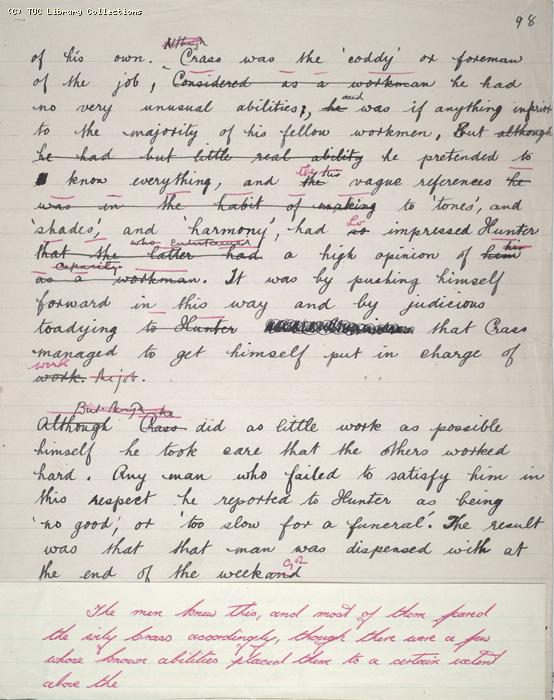 (C) TUC Library Collections
98
Although
of his own. Crass was the 'coddy' or foreman
of the job, Considered as a workman he had
no very unusual abilities; he and was if anything inferior
to the majority of his fellow workmen, But although
he had but little real ability he pretended to
know everything, and the vague references he
was in the habit of making to 'tones', and
'shades', and 'harmony', had so impressed Hunter
that the latter had a high opinion of him his
who entertained
capacity
as a workman. It was by pushing himself
forward in this way and by judicious
toadying to Hunter that Crass
managed to get himself put in charge of
work
work. the job.
But though he
Although Crass did as little work as possible
himself he took care that the others worked
hard. Any man who failed to satisfy him in
this respect he reported to Hunter as being
'no good', or 'too slow for a funeral'. The result
was that that man was dispensed with at
the end of the week and
The men knew this, and most of them feared
the wily Crass accordingly, though there were a few
whose known abilities placed them to a certain extent
above the